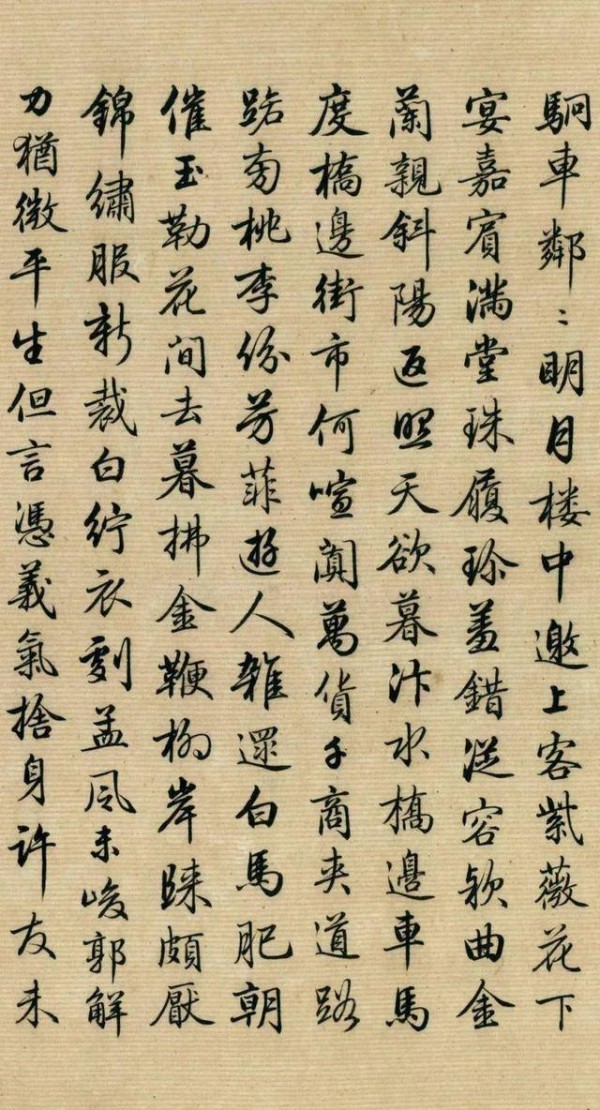 駉車鄰〻明月楼中邀上客紫薇花下
宴嘉賓滿堂珠履珍羞錯從容欵曲金
蘭親斜陽返照天欲暮汴水橋邊車馬
度橋邊街市何喧闐萬貨千商夾道路
路旁桃李紛芳菲遊人雜遝白馬肥朝
催玉勒花间去暮拂金鞭柳岸歸頗厭
錦繡服新裁白紵衣劇孟風未峻郭解
力猶微平生但言憑義氣捨身許友未